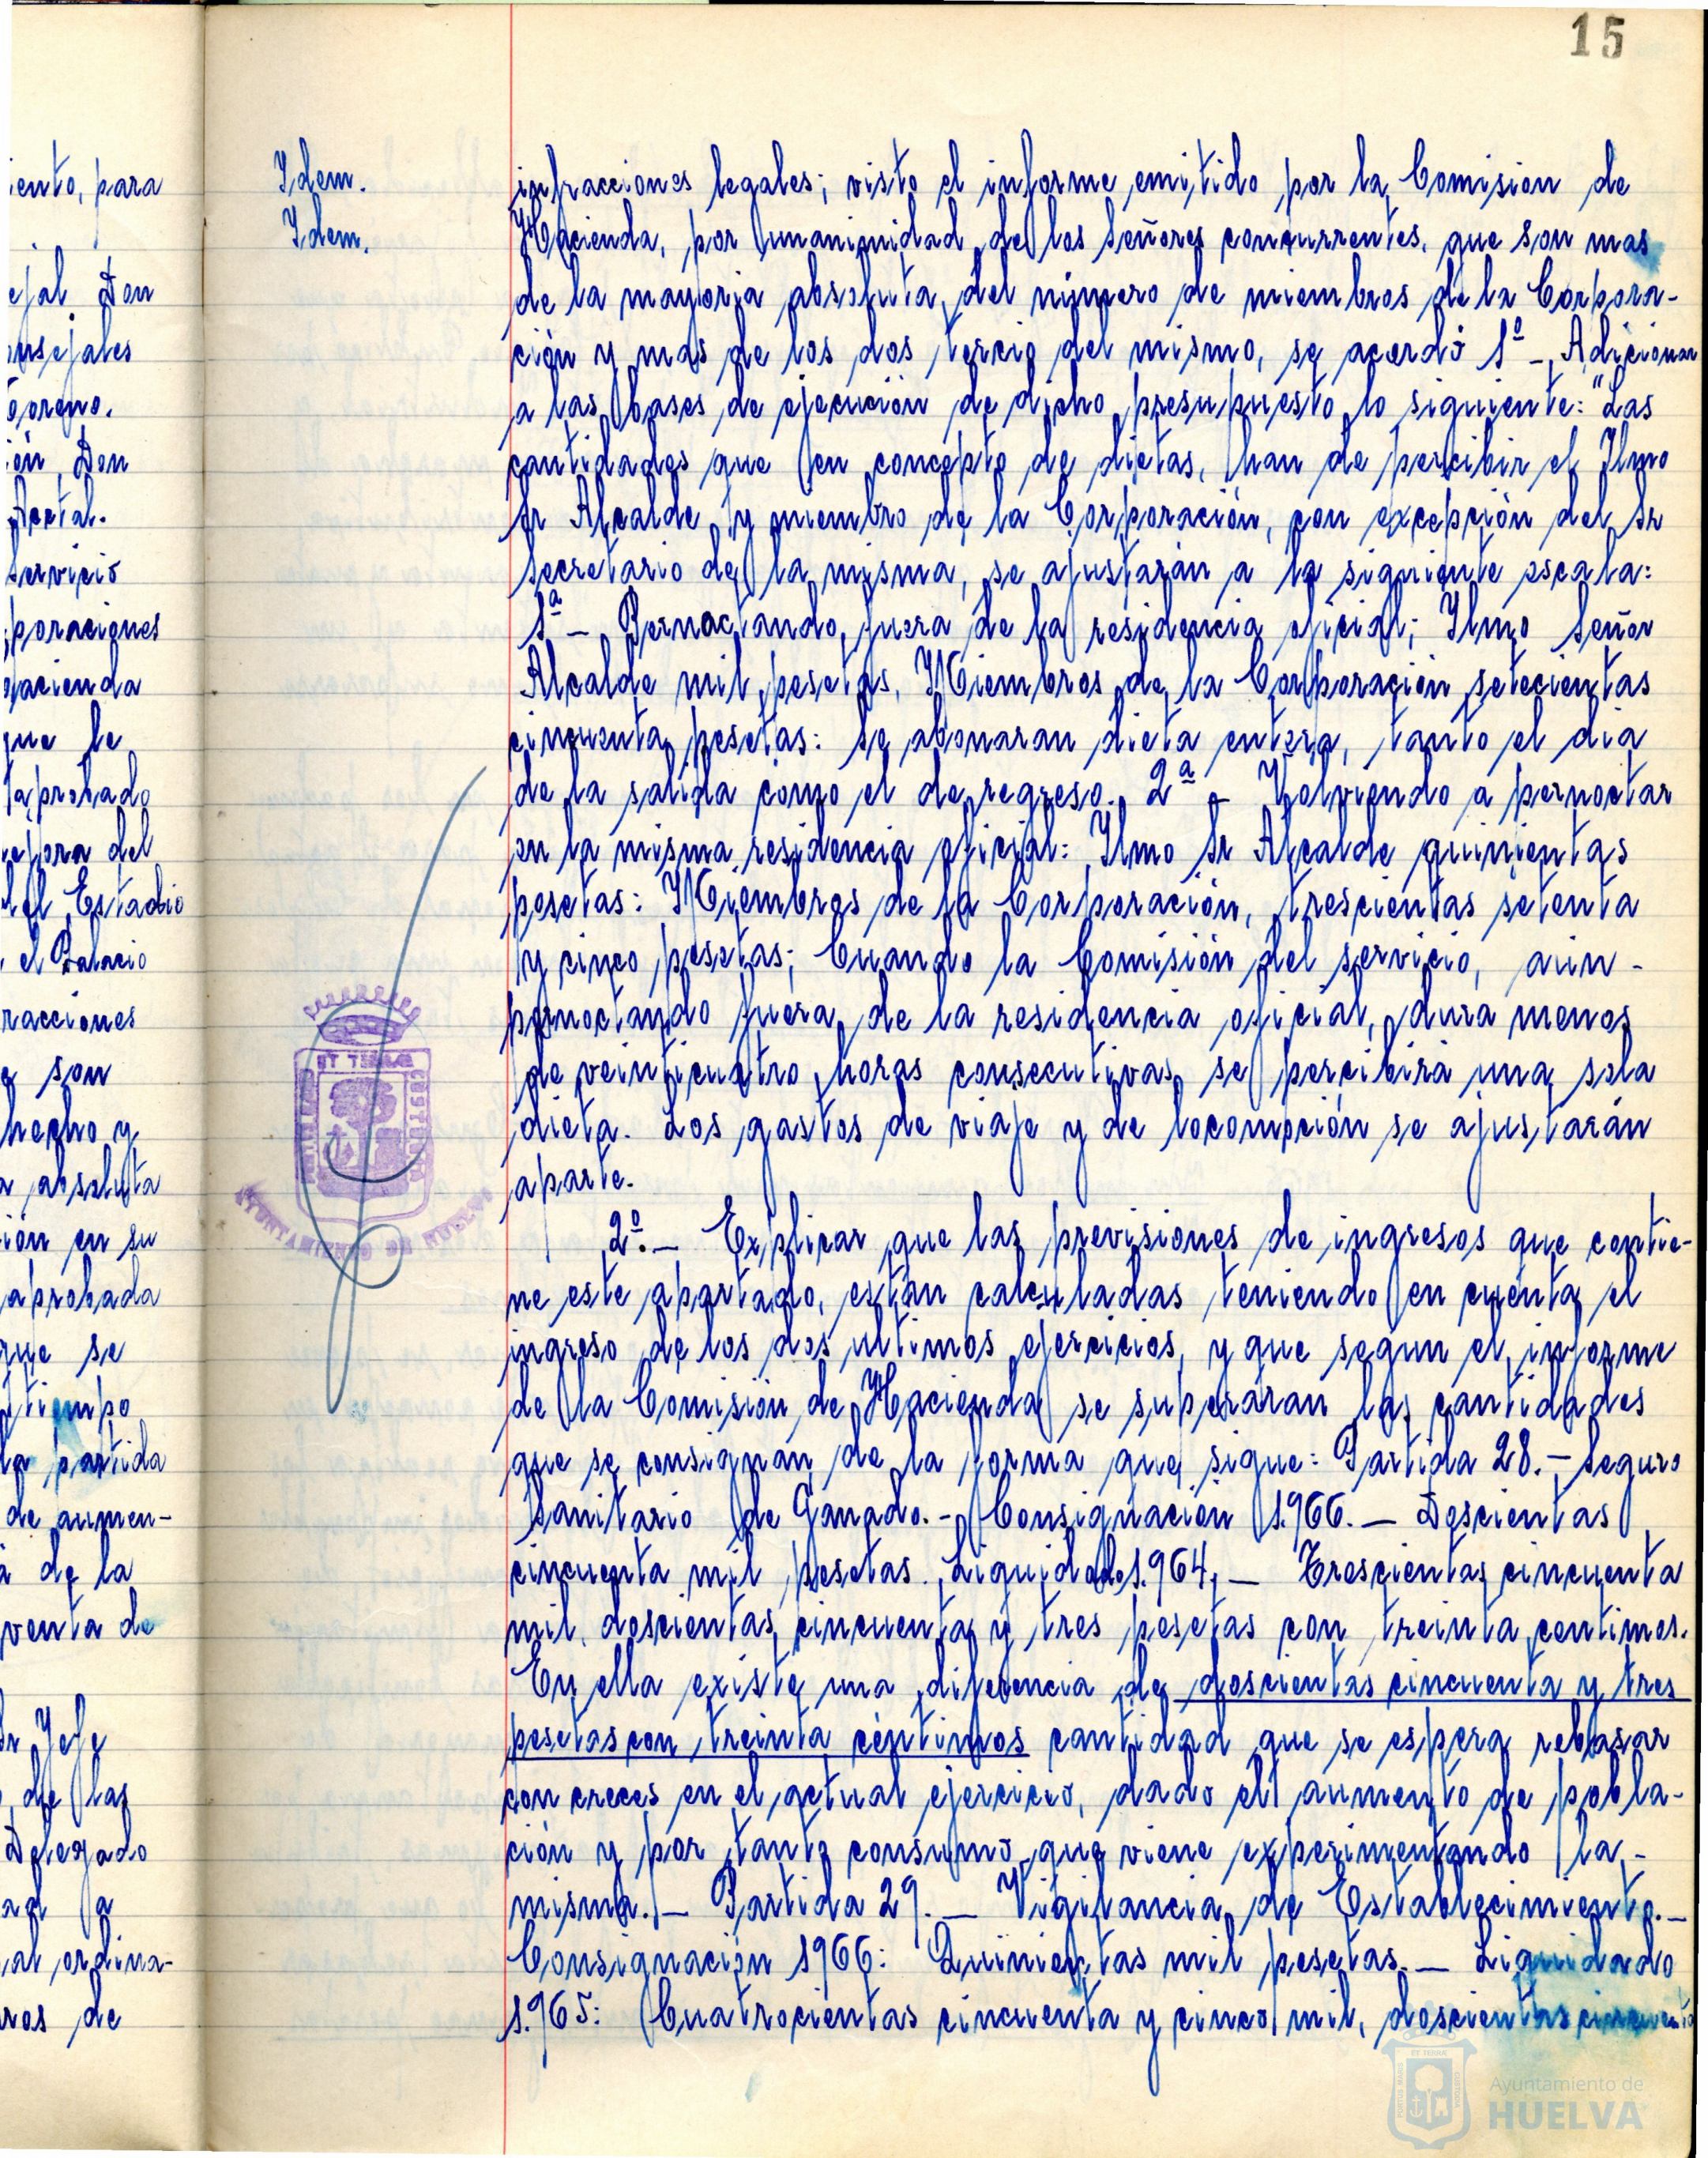 15
iento, para
ejal Don
onsejales
oreno.
ión, Don
Acctal.
Servicio
poraciones
Hacienda
que le
aprobado
el Estadio
el Palacio
racciones
e son
hecho y
a absoluta
ión en su
aprobada
que se
tiempo
la partida
de aumen-
a de la
venta de
Sr Jefe
de las
Delegado
ad a
al ordina-
ros de
Idem.
Idem.
infracciones legales; visto el informe emitido por la Comision de
Hacienda, por umanimidad de los Señores concurrentes, que son mas
de la mayoria absoluta del número de miembros de la Corpora-
ción y mas de los dos tercio del mismo, se acordó 1º -, Adicionar
a las bases de ejecución de dicho presupuesto lo siguiente: "Las
cantidades que en concepto de dietas, han de percibir el Ilmo
Sr Alcalde y miembro de la Corporación, con excepción del Sr
Secretario de la misma, se ajustarán a la siguiente escala:
1ª - Pernactando, fuera de la residencia oficial; Ilmo Señor
Alcalde mil pesetas, Miembros de la Corporación setecientas
cincuenta pesetas: se abonaran dieta entera, tanto el dia
de la salida como el de regreso. 2ª - Volviendo a pernoctar
en la misma residencia oficial: Ilmo Sr Alcalde quinientas
pesetas: Miembros de la Corporación, trescientas setenta
y cinco pesetas; Cuando la Comisión del servicio, aun -
pernoctando fuera de la residencia oficial, dura menos
de veinticuatro horas consecutivas se percibirá una sola
dieta. Los gastos de viaje y de locomoción se ajustarán
aparte.
2º.- Explicar que las previsiones de ingresos que contie-
ne este apartado, están calculadas teniendo en cuenta el
ingreso de los dos ultimos ejercicios, y que segun el informe
de la Comisión de Hacienda se superaran las cantidades
que se consignan de la forma que sigue: Partida 28.- Seguro
Sanitario de Ganado.- Consignación 1.966.- Doscientas
cincuenta mil pesetas. Liquidado 1.964.- Trescientas cincuenta
mil, doscientas cincuenta y tres pesetas con treinta centimos.
En ella existe una diferencia de doscientas cincuenta y tres
pesetas con treinta céntimos cantidad que se espera rebasar
con creces en el actual ejercicio, dado el aumento de pobla-
ción y por tanto consumo que viene experimentando la -
misma.- Partida 29.- Vigilancia de Establecimiento.-
Consignación 1966: Quinientas mil pesetas.- Liquidado
1.965: Cuatrocientas cincuenta y cinco mil, doscientas cincuenta
ET TERRAE
CUSTODIA
AYUNTAMIENTO DE HUELVA
Ayuntamiento de
HUELVA